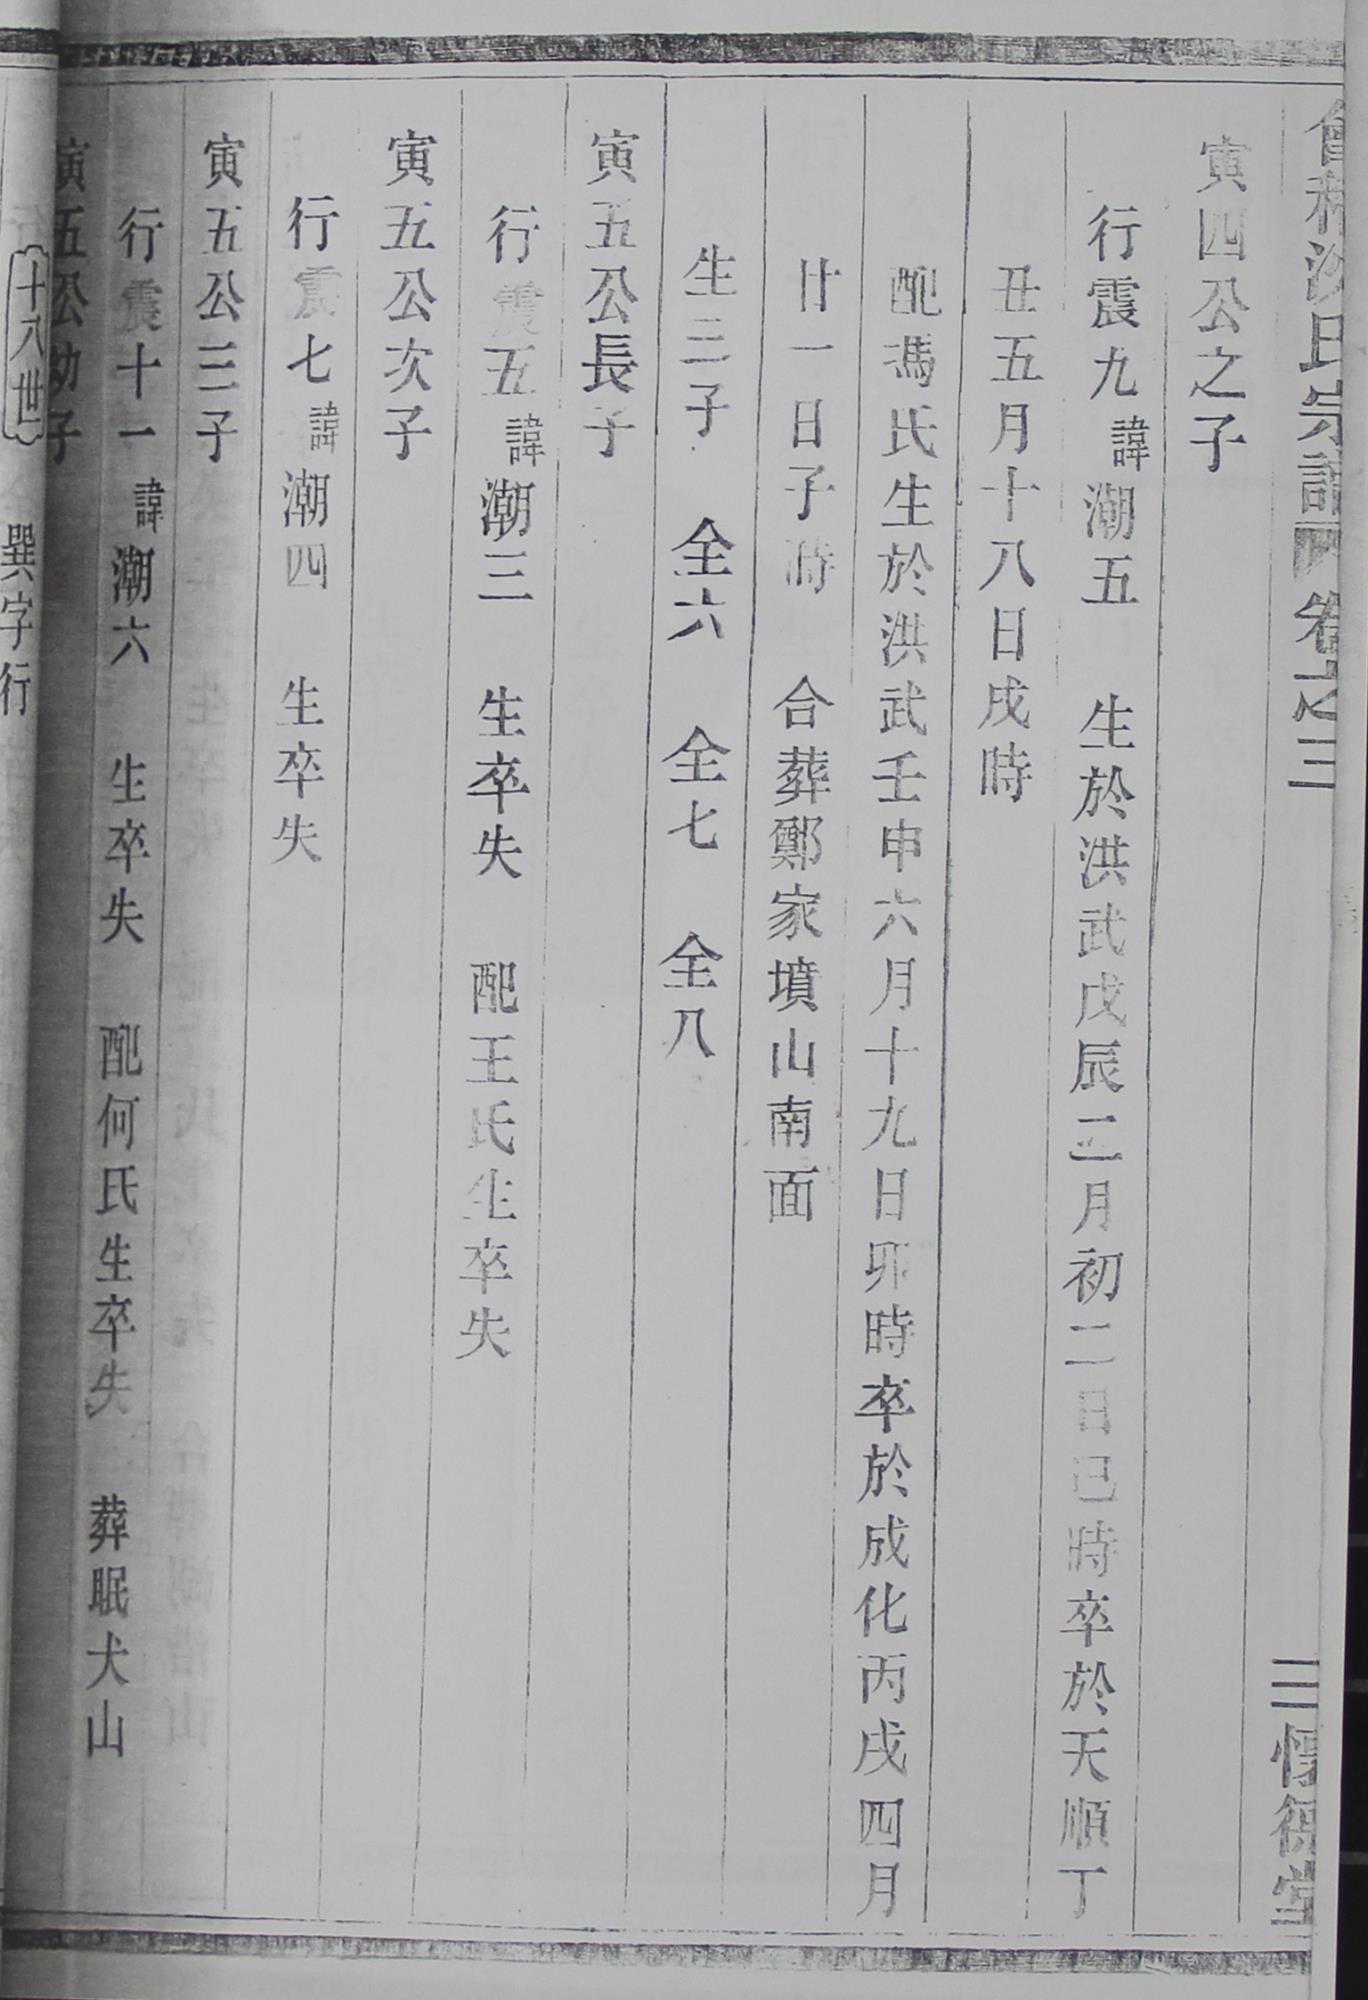 氏宗譜 卷之三
三 懷德堂
寅四公之子
行震九諱潮五 生於洪武戊辰二月初二日巳時卒於天順丁
丑五月十八日戌時
配馮氏生於洪武壬申六月十九日卯時卒於成化丙戌四月
廿一日子時 合葬鄭家墳山南面
生三子 全六 全七 全八
寅五公長子
行震五諱潮三 生卒失 配王氏生卒失
寅五公次子
行震七諱潮四 生卒失
寅五公三子
行震十一諱潮六 生卒失 配何氏生卒失 葬眠犬山
寅五公幼子
十八世 巽字行